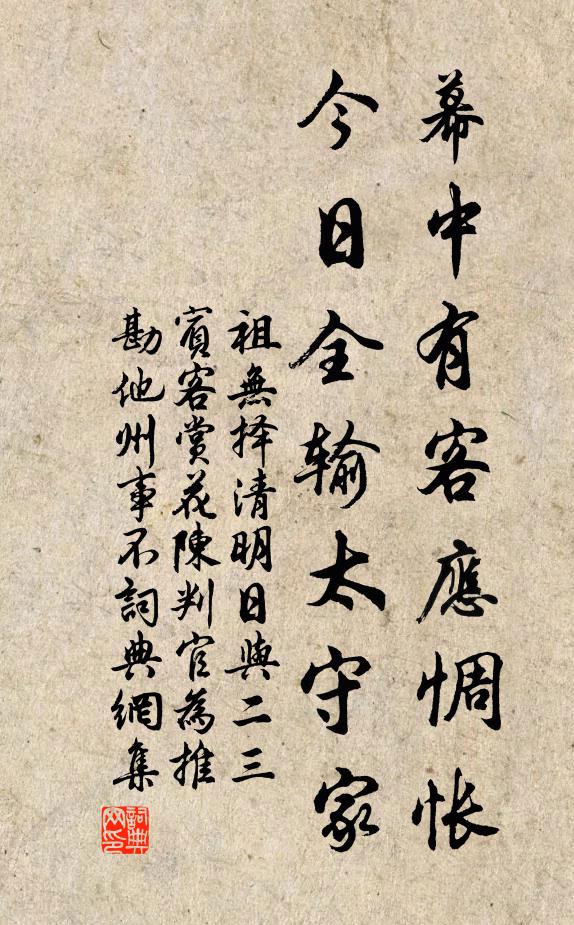 幕中有客應惆怅
今日全输太守家
祖無择清明日與二三
賓客賞花陳判官為推
勘他州事不詞典網集
詞典
网印